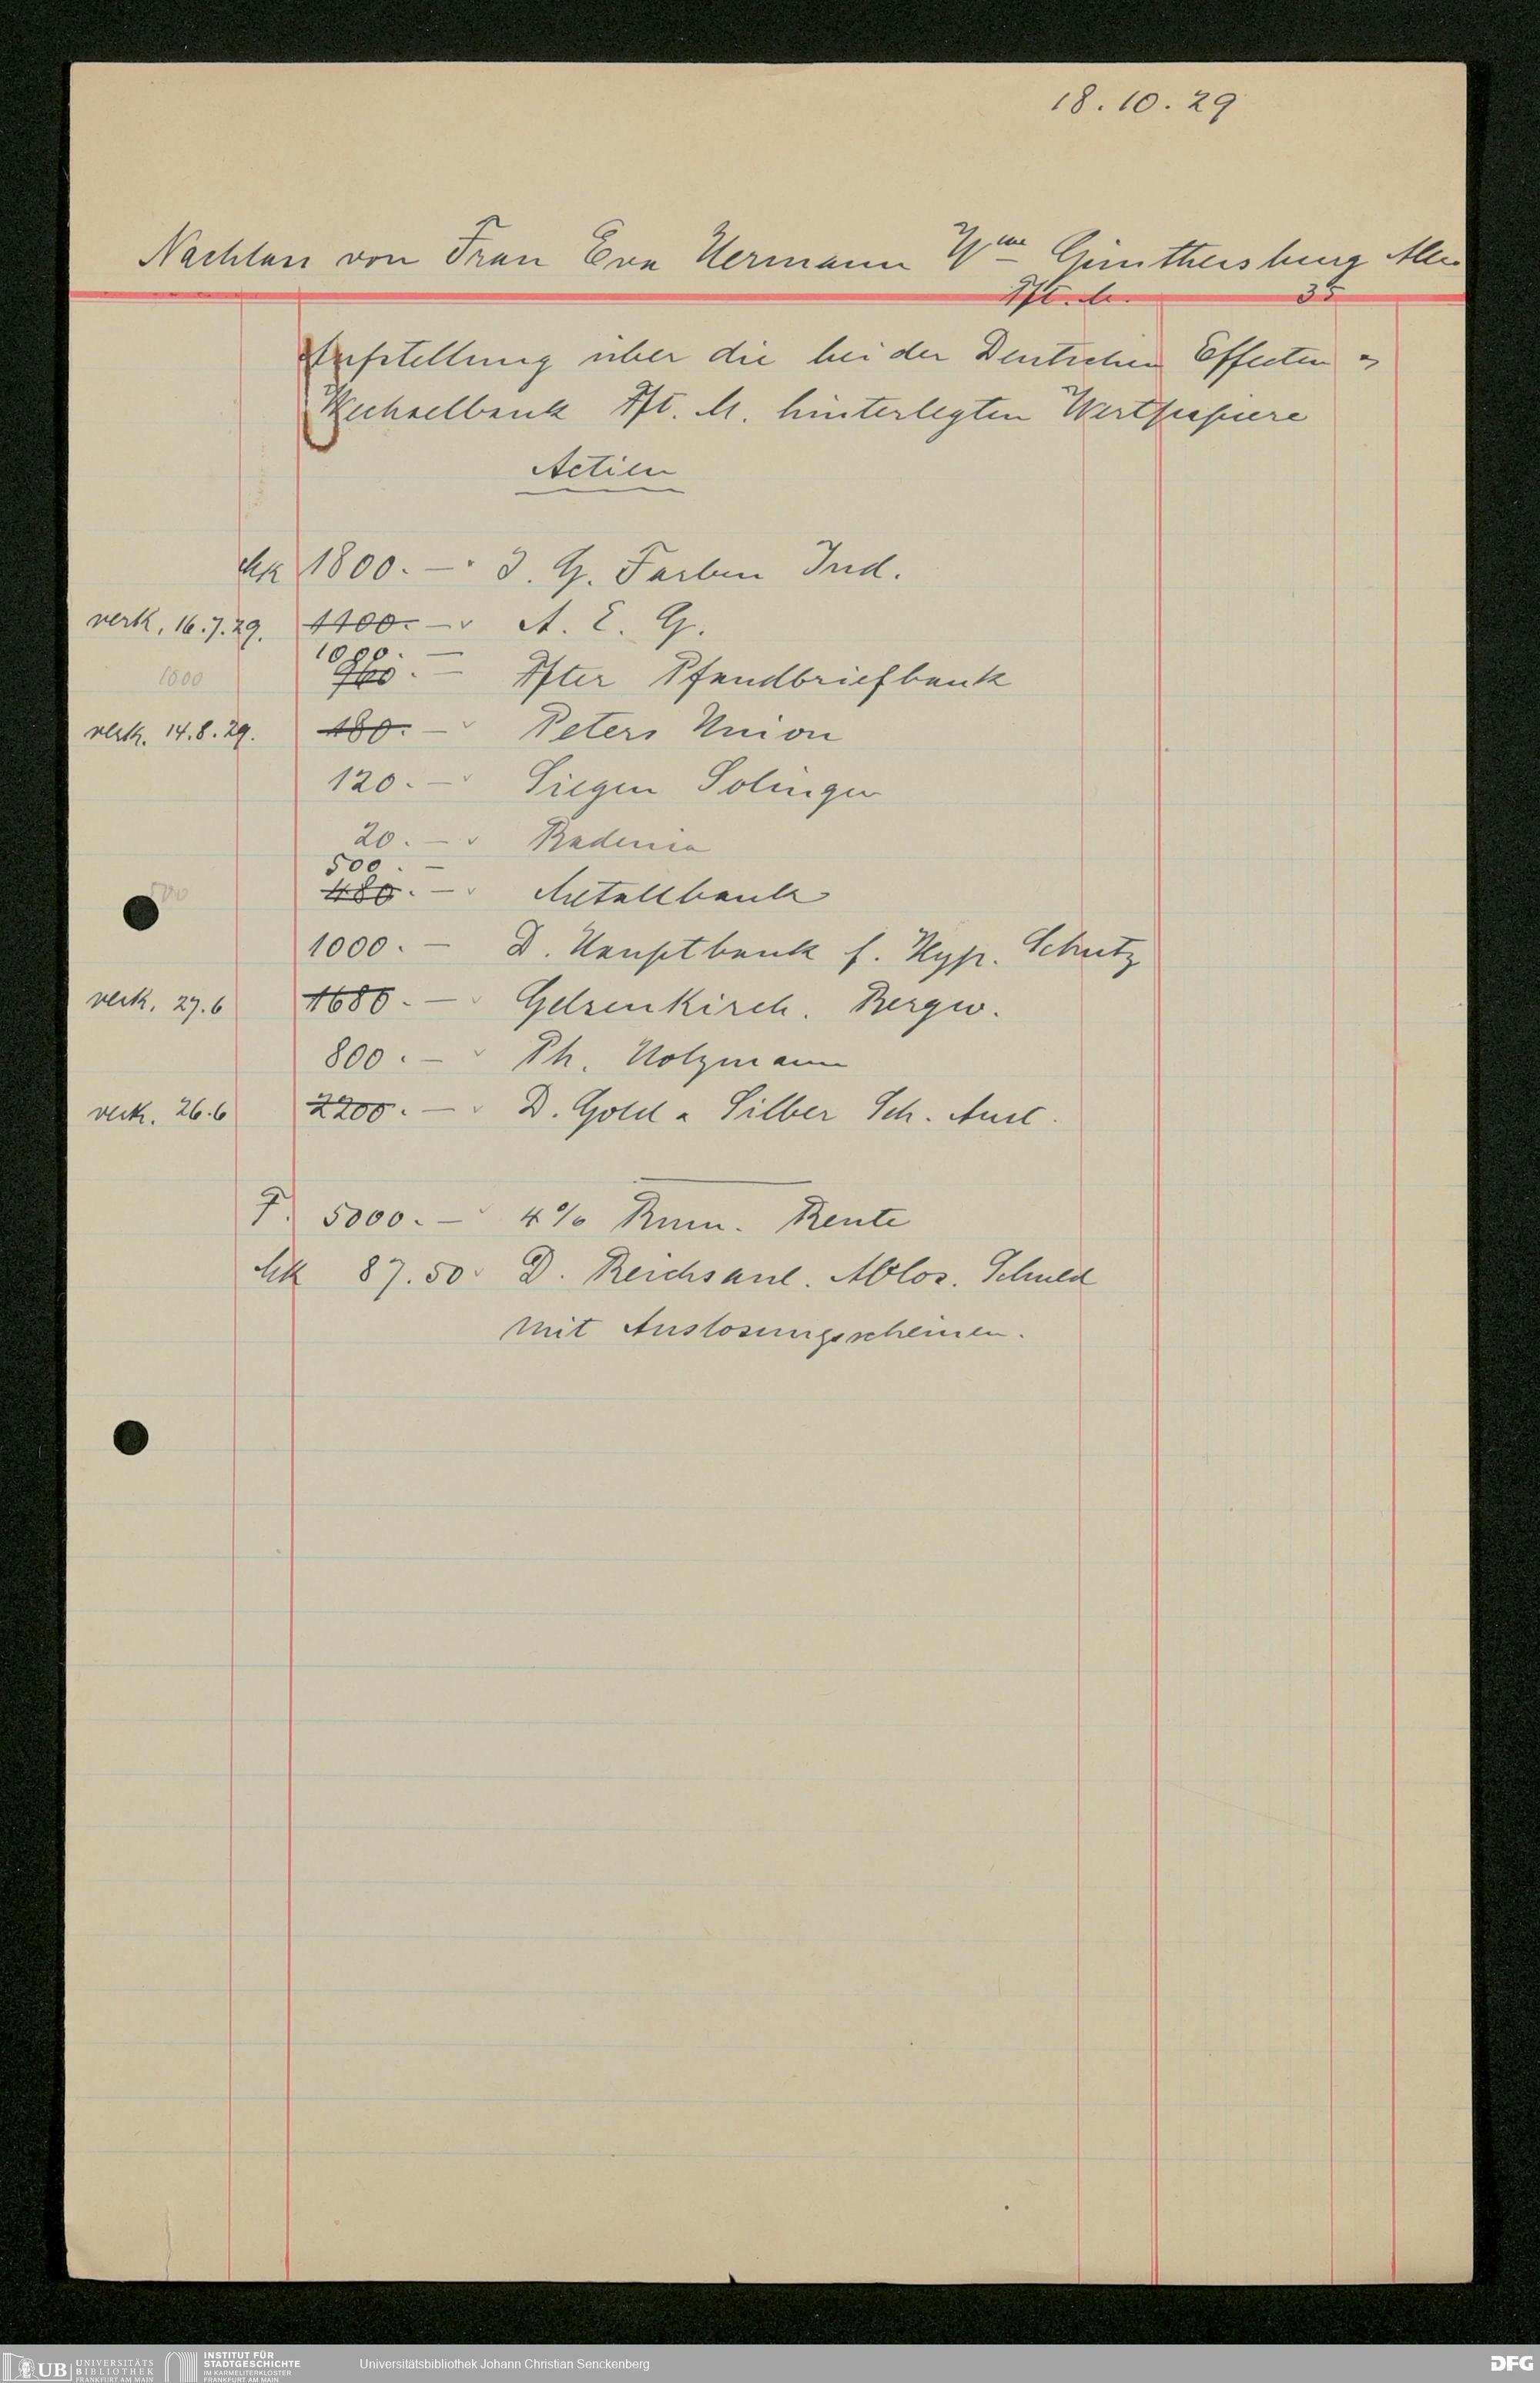 18.10.29
Nachlass von Frau Eva Hermann Wwe Günthersburg Allee
Fft. M. 35
Aufstellung über die bei der Deutschen Effecten u
Wechselbank Fft. M. hinterlegten Wertpapiere
Actien
Mk 1800.— I. G. Farben Ind.
verk. 16.7.29. 1100.— A. E. G.
1000.—
1000 960.— Ffter Pfandbriefbank
verk. 14.8.29. 180.— Peters Union
120.— Siegen Solingen
20.— Badenia
500.—
500 480.— Metallbank
1000.— D. Hauptbank f. Hyp. Schutz
verk. 27.6 1680.— Gelsenkirch. Bergw.
800.— Ph. Holzmann
verk. 26.6 2200.— D. Gold u Silber Sch. Anst.
F. 5000.— 4% Rum. Rente
Mk 87.50 D. Reichsanl. Ablös. Schuld
mit Auslosungsscheinen.
UB UNIVERSITÄTS
BIBLIOTHEK
FRANKFURT AM MAIN
INSTITUT FÜR
STADTGESCHICHTE
IM KARMELITERKLOSTER
FRANKFURT AM MAIN
Universitätsbibliothek Johann Christian Senckenberg
DFG